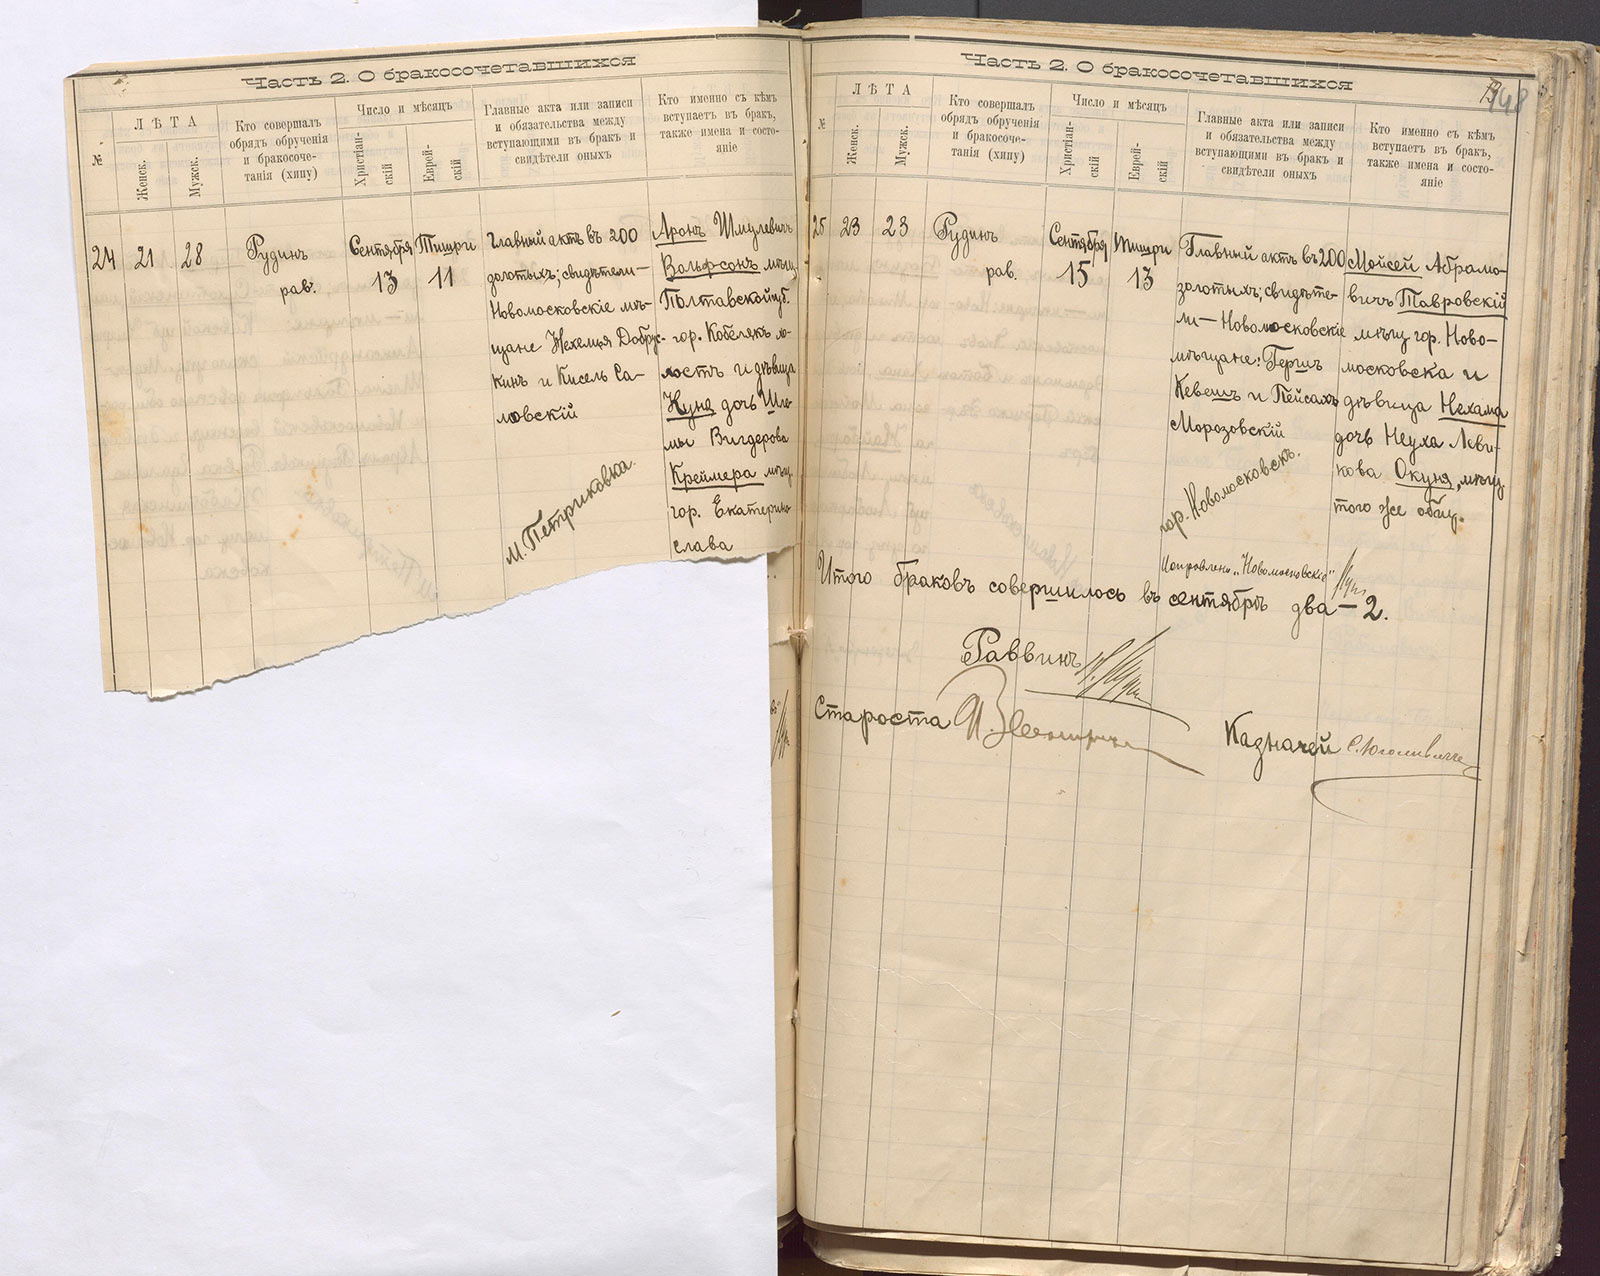 Часть 2. О бракосочетавшихся
№
ЛѢТА
Женск.
Мужск.
Кто совершалъ
обрядъ обрученія
и бракосоче-
танія (хипу)
Число и мѣсяцъ
Христіан-
скій
Еврей-
скій
Главные акта или записи
и обязательства между
вступающими въ бракъ и
свидѣтели оныхъ
Кто именно съ кѣмъ
вступаетъ въ бракъ,
также имена и состо-
яніе
24
21
28
Рудинъ
рав.
Сентября
13
Тишри
11
Главный актъ въ 200
золотыхъ; свидѣтели—
Новомосковскіе мѣ-
щане Нехемья Добрус-
кинъ и Кисель Са-
ловскій
М. Петриковка.
Аронъ Шмулевичъ
Вольфсонъ мѣщ.
Полтавской губ.
гор. Кобелякъ хо-
лостъ и дѣвица
дочь Шло-
мы Вигдерова
Креймера мѣщ.
гор. Екатерино-
слава
Часть 2. О бракосочетавшихся
148
№
ЛѢТА
Женск.
Мужск.
Кто совершалъ
обрядъ обрученія
и бракосоче-
танія (хипу)
Число и мѣсяцъ
Христіан-
скій
Еврей-
скій
Главные акта или записи
и обязательства между
вступающими въ бракъ и
свидѣтели оныхъ
Кто именно съ кѣмъ
вступаетъ въ бракъ,
также имена и состо-
яніе
25
23
23
Рудинъ
рав.
Сентября
15
Тишри
13
Главный актъ въ 200
золотыхъ; свидѣте-
ли— Новомосковскіе
мѣщане: Гершъ
Кевешъ и Пейсахъ
Морозовскій
гор. Новомосковскъ.
Мойсей Абрамо-
вичъ Тавровскій
мѣщ. гор. Ново-
московска и
дѣвица Нехама
дочь Неуха Леви-
кова Окуня, мѣщ.
того же общ.
Исправлено „Новомосковскіе"
Итого браковъ совершилось въ сентябрѣ два — 2.
Раввинъ
Староста
Казначей